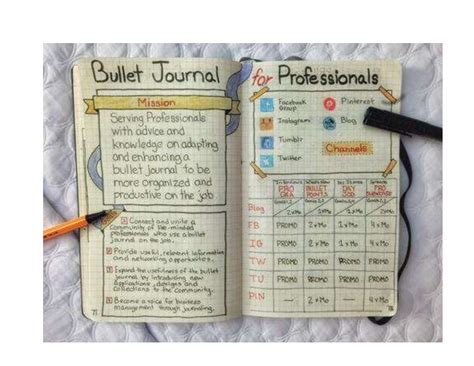 Bullet Journal
Mission
Serving Professionals
with advice and
knowledge on adapting
and enhancing a
bullet journal to be
more organized and
productive on the job
1 Connect and unite a
community of like-minded
professionals who use a bullet
journal on the job.
2 Provide useful, relevant information
and networking opportunities.
3 Expand the usefulness of the bullet
journal by introducing new
applications, designs and
collections to the community.
4 Become a voice for business
management through journaling.
for Professionals
Facebook
Group
Pinterest
Instagram
Blog
Tumblr
Twitter
Channels
PRO
BULLET
DAY
PRO
POINTS
JOB
Blog
2xMo
2xMo
FB PROMO 2xMo 1xMo 4xMo
IG PROMO 2xMo 1xMo 4xMo
TW PROMO PROMO PROMO PROMO
TU PROMO PROMO PROMO PROMO
PIN — 2xMo — 4xMo